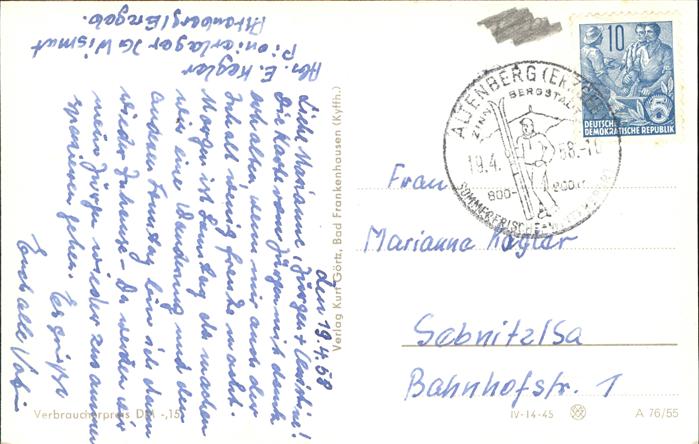 Abs. E. Kegler
Pionierlager IG Wismut
Altenberg/Erzgeb.
den 19.4.58
Liebe Marianne, Jürgen +
Die Karte vom Jürgen mit dank
erhalten, wenn mir auch der
Inhalt wenig freude macht.
Morgen ist Sonntag da machen
wir eine Wanderung und den
andern Sonntag bin ich dann
wieder zuhause. Da werden wir
mein Jürgen wieder zusammen
spazieren gehen. Es grüßt
Euch alle Vati
Verlag Kurt Görtz, Bad Frankenhausen (Kyffh.)
Verbraucherpreis DM -,15
10
DEUTSCHE
DEMOKRATISCHE REPUBLIK
ALTENBERG (ERZGEB)
ZINN BERGSTADT
19.4.58.-11
800- 900 m
SOMMERFRISCHE
Frau
Marianne Kegler
Sebnitz/Sa
Bahnhofstr. 1
IV-14-45
A 76/55